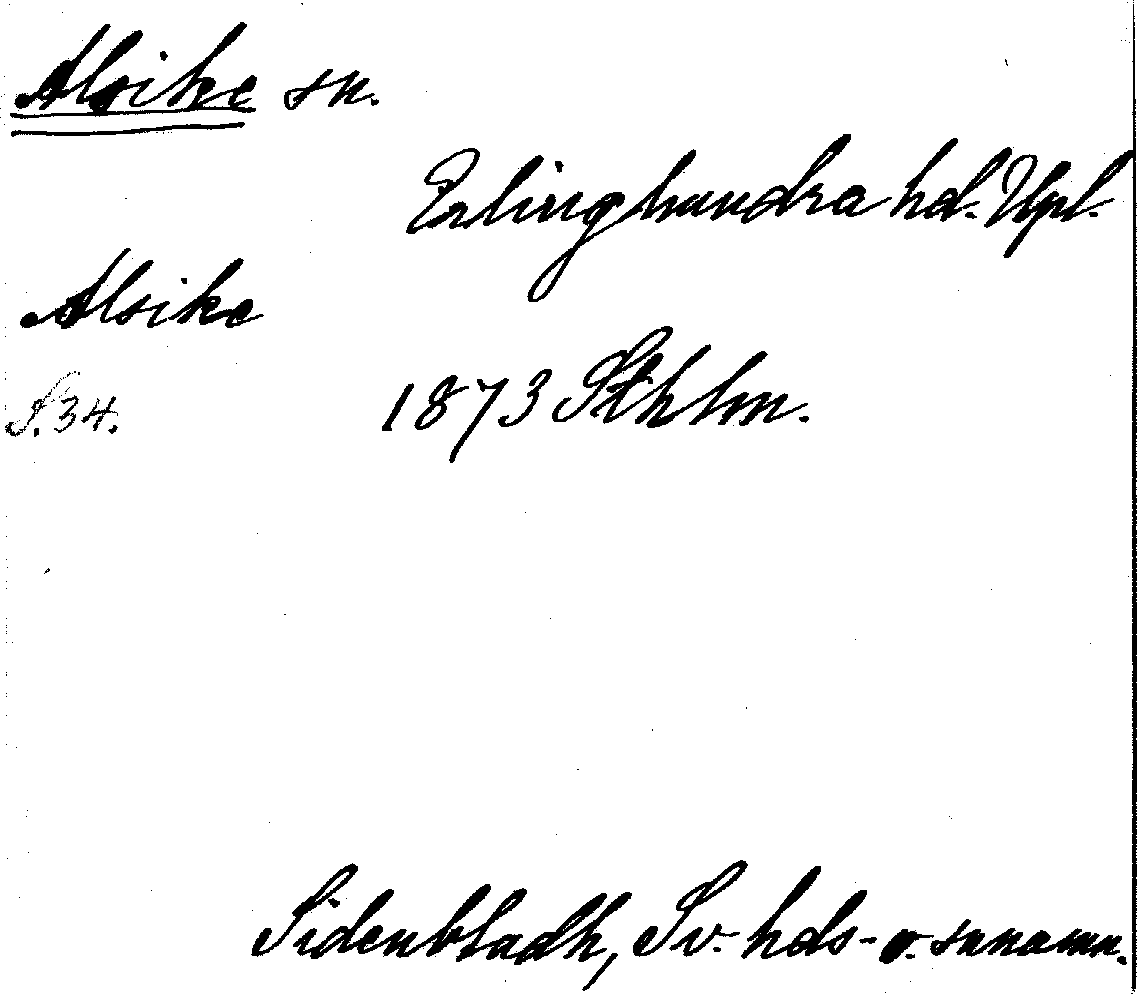 Alsike sn.
Erlinghundra hd. Upl.
Alsike
S. 34. 1873 Sthlm.
Sidenbladh, Sv. hds- o. snnamn.